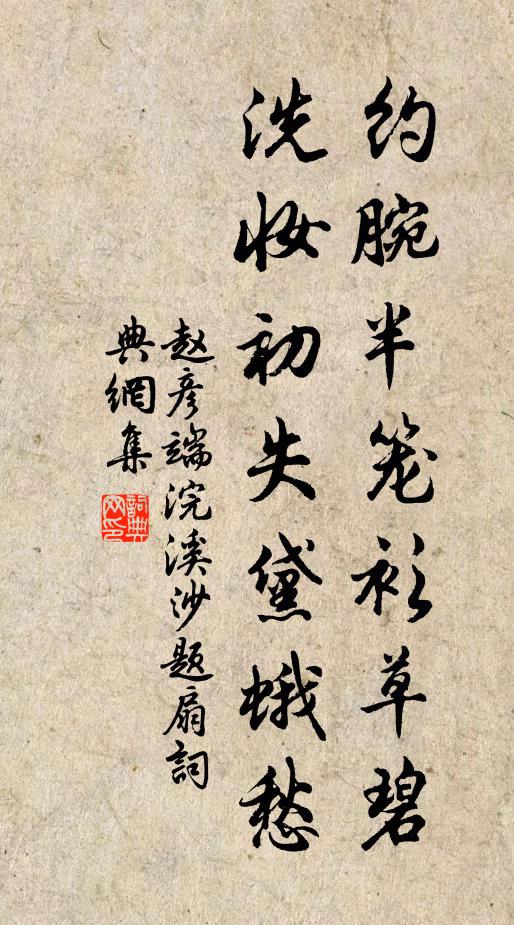 约腕半笼衫草碧
洗妆初失黛蛾愁
赵彦端浣溪沙题扇詞
典網集
詞典網印